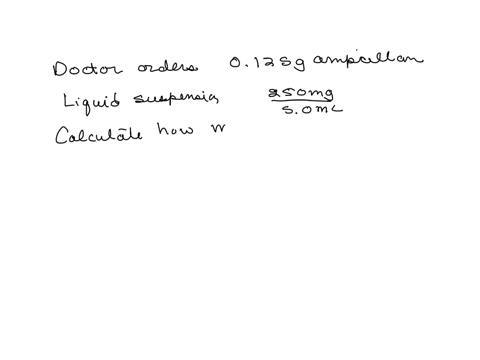 Doctor orders 0.125g ampicillan
Liquid suspension 250mg
5.0mL
Calculate how